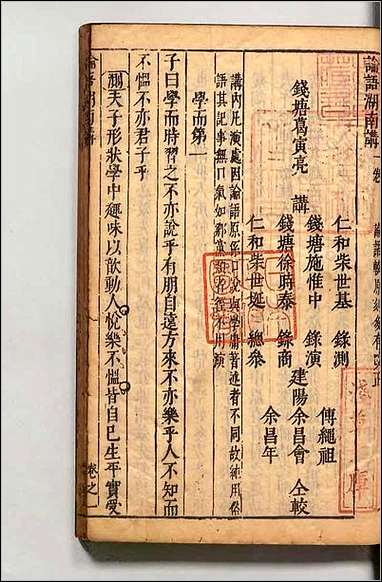 論語湖南講
錢塘葛寅亮 講
仁和柴世基 錄測
錢塘施惟中 錄演
錢塘徐時泰 錄商
仁和柴世埏 總參
傅繩祖
建陽余昌會 仝較
余昌年
講內凡演處因論語原係口談與學庸著述者不同故純用俗
語其記事無口氣如鄉黨等
不用演
學而第一
子曰學而時習之不亦說乎有朋自遠方來不亦樂乎人不知而
不慍不亦君子乎
測夫子形狀學中趣味以歆動人悅樂不慍皆自己生平實受
論語湖南講
卷之一